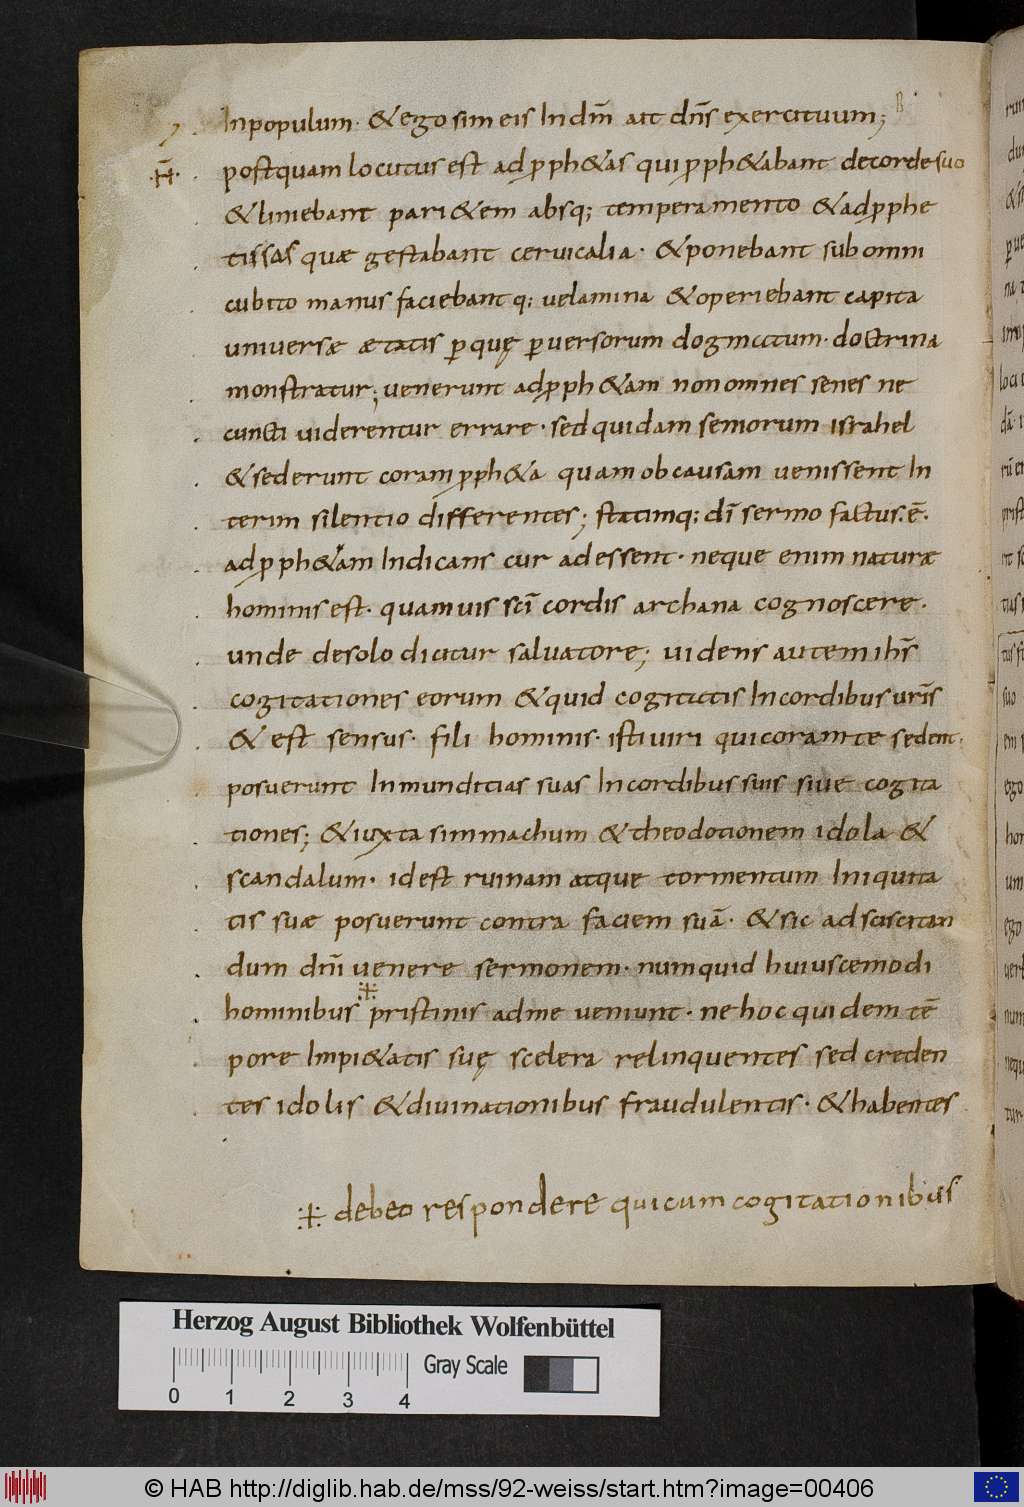 B
Inpopulum · & ego sim eis In dm̄ ait dn̄s exercituum;
·H̄· postquam locutus est ad p̄ph&as qui p̄ph&abant decorde suo
& liniebant pari&em absq; temperamento & ad p̄phe
tissas quæ gestabant cervicalia · & ponebant sub omni
cubito manus faciebantq; velamina & operiebant capita
universæ ætatis p̱ quę p̱versorum dogmatum · doctrina
monstratur; venerunt ad p̄ph&am non omnes senes ne
cuncti viderentur errare · sed quidam seniorum israhel
& sederunt coram p̄ph&a quam ob causam venissent In
terim silentio differentes; statimq; dī sermo factus · ē ·
ad p̄ph&am Indicans cur adessent · neque enim naturæ
hominis est · quamvis scī cordis archana cognoscere ·
unde de solo dicitur salvatore; videns autem ih̄s
cogitationes eorum & quid cogitatis In cordibus vr̄is
& est sensus · fili hominis · isti viri qui coram te sedent ·
posuerunt Inmunditias suas In cordibus suis sive cogita
tiones; & iuxta simmachum & theodotionem idola &
scandalum · id est ruinam atque tormentum Iniquita
tis suæ posuerunt contra faciem suā · & sic ad sciscitan
dum dn̄i venere sermonem · numquid huiuscemodi
hominibus ⁜ pristinis ad me veniunt · ne hoc quidem tē
pore Impi&atis suę scelera relinquentes sed creden
tes idolis & divinationibus fraudulentis · & habentes
⁜ debeo respondere qui cum cogitationibus
Herzog August Bibliothek Wolfenbüttel
0 1 2 3 4 Gray Scale
© HAB http://diglib.hab.de/mss/92-weiss/start.htm?image=00406